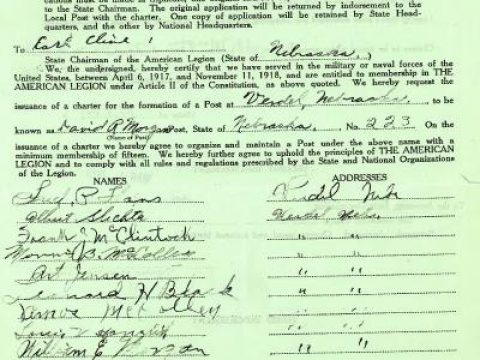 to the State Chairman. The original application will be returned by indorsement to the
Local Post with the charter. One copy of application will be retained by State Head-
quarters, and the other by National Headquarters.
To Earl Cline
State Chairman of the American Legion (State of Nebraska.)
We, the undersigned, hereby certify that we have served in the military or naval forces of the
United States, between April 6, 1917, and November 11, 1918, and are entitled to membership in THE
AMERICAN LEGION under Article II of the Constitution, as above quoted. We hereby request
issuance of a charter for the formation of a Post at Verdel, Nebraska, to be
known as David R Morgan Post, State of Nebraska, No. 223 On the
(Name of Post)
issuance of the charter we hereby agree to organize and maintain a Post under the above name with a
minimum membership of fifteen. We hereby further agree to uphold the principles of THE AMERICAN
LEGION and to comply with all rules and regulations prescribed by the State and National Organizations
of the Legion.
NAMES ADDRESSES
P. Verdel Nebr
Albert Slechta Verdel Nebr.
Frank J McClintock " "
B. McColley " "
Art Jensen " "
Leonard H Black " "
McColley " "
Louis " "
William E " "